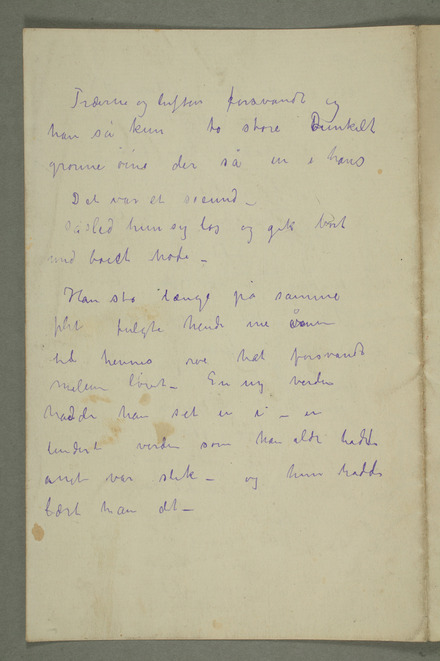 Træerne og luften forsvandt og
han så kun to store Dunkelt
grønne öine der så in i hans
Det var et secund –
så sled hun sig løs og gik bort
med boiet hode –
Han sto længe på samme
plet fulgte hende me
til hennes røe hat forsvandt
mellem løvet – En ny verden
hadde han set in i – en
verden som han aldri hadde
anet var slik – og hun hadde
lært han det –